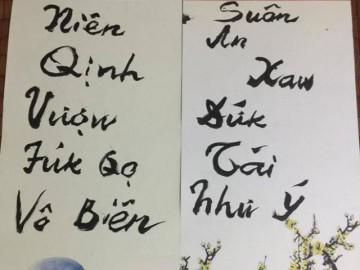 Niên
Qịnh
Vượw
Fúk Qọ
Vô Biên
Suân
An
Xaw
Dúk
Tái
Như Ý